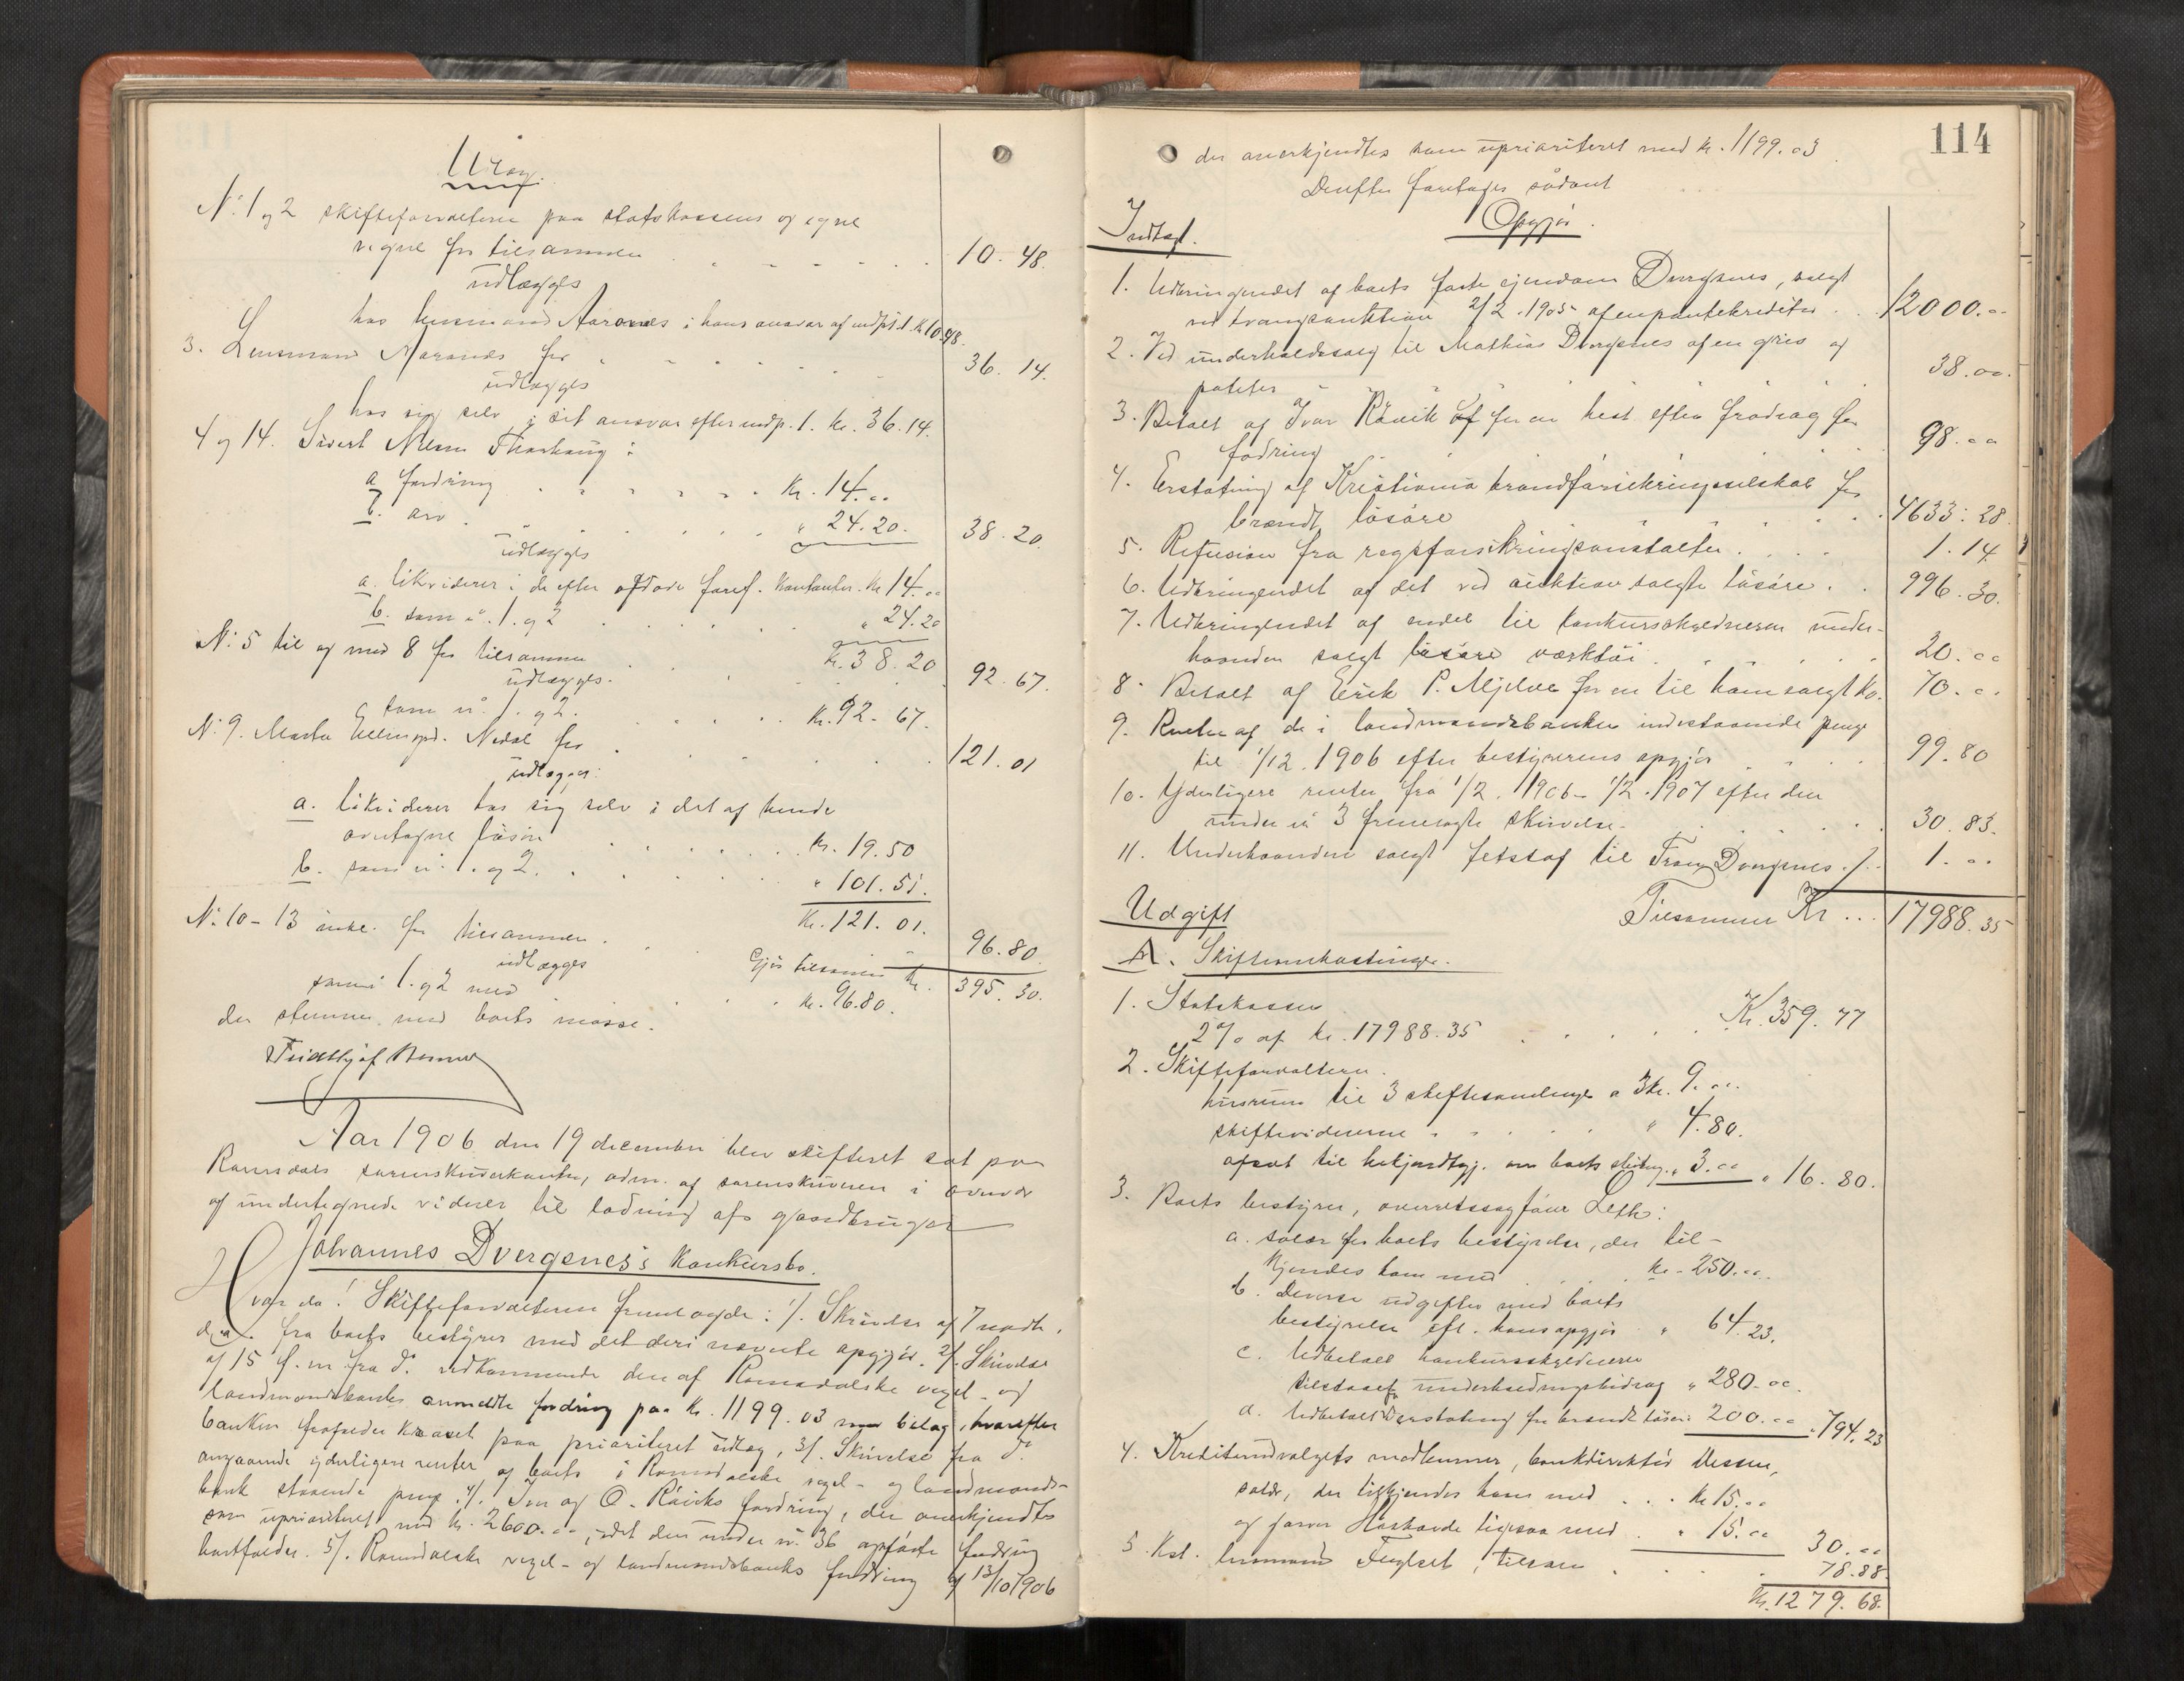 Udlæg.
N: 1 og 2 skifteforvalteren paa statskassens og egne
vegne for tilsammen 10. 48.
udlægges
hos lensmand Aarønes i hans ansvar af indpt. 1. K 10.48.
3. Lensmand Aarønes for 36. 14.
udlægges
hos sig selv i sit ansvar efter indp. 1. kr. 36.14.
4 og 14. Sivert Nilsen :
a fordring Kr. 14. "
b. arv " 24.20. 38. 20.
udlægges
a. likviderer i de efter afdøde foref. kontanter. Kr 14. "
b. som n. 1. og 2 " 24.20
Kr. 38.20
N: 5 til og med 8 for tilsammen 92. 67.
udlægges.
som n. 1. og 2. Kr. 92. 67.
N: 9. Marta Ellingsd. Nedal for 121. 01
udlægges:
a. likviderer hos sig selv i det af hende
overtagne løsøre Kr. 19.50
b. som n. 1. og 2. " 101. 51.
Kr. 121. 01.
N: 10 - 13 inkl. for tilsammen 96. 80.
udlægges Gjør tilsammen Kr. 395. 30.
som i 1. og 2 med kr. 96.80.
der stemmer med boets masse.
Fridthjof
Aar 1906 den 19 december blev skifteret sat paa
Romsdals sorenskriverkontor, adm. af sorenskriveren i overvær
af undertegnede vidner til lodning af gaardbruger
Johannes Dvergsnes's konkursbo.
Hvor da: Skifteforvalteren fremlagde: 1/. Skrivelse af 7 novbr.
d. a. fra boets bestyrer med det deri nævnte opgjør. 2/. Skrivelse
af 15 f. m. fra do. vedkommende den af Romsdalske vexel- og
landmandsbanks anmeldte fordring paa Kr. 1199.03 med bilag, hvorefter
banken frafalder kravet paa prioriteret udlæg, 3/. Skrivelse fra do.
angaaende yderligere renter af boets i Romsdalske vexel- og landmands-
bank staaende penge. 4/. Iver og O. Røviks fordring, der anerkjendtes
som uprioriteret med kr. 2600. ", idet den under n. 36 opførte fordring
bortfalder. 5/. Romsdalske vexel- og landmandsbanks fordring af 13/10 1906
114
der anerkjendtes som uprioriteret med kr. 1199.03.
Derefter foretoges sådant
Opgjør.
Indtægt.
1. Udbringendet af boets faste ejendom Dvergsnes, solgt
ved tvangsauktion 2/2 . 1905 af en pantekreditor 12000. "
2. Ved underhaandssalg til Mathias Dvergsnes af en gris og
poteter 38. "
3. Betalt af Ivar Røvik for en hest efter fradrag for
fodring 98. "
4. Erstatning af Kristiania brandforsikringsselskab for
brændt løsøre 4633. 28.
5. Refusion fra anstalten 1. 14
6. Udbringendet af det ved auktion solgte løsøre 996. 30.
7. Udbringendet af endel til konkursskyldneren under-
haanden solgt løsøre værktøi 20. "
8. Betalt af Erik P. Mjelve for en til ham solgt ko. 70. "
9. Renter af de i landmandsbanken indestaaende penge
til 1/12. 1906 efter bestyrerens opgjør 99. 80
10. Yderligere renter fra 1/2. 1906 - 1/2. 1907 efter den
under n. 3 fremlagte skrivelse 30. 83.
11. Underhaanden solgt til Frans Dvergsnes 1. "
Tilsammen Kr. 17988. 35
Udgift
A. Skifteomkostninger.
1. Statskassen
2% af kr. 17988.35 Kr. 359. 77
2. Skifteforvalteren.
husrum til 3 skiftesamlinger a 3 kr. 9. "
skiftevidnerne " 4.80.
afsat til bekjendtgj. om boets slutning " 3. " " 16. 80.
3. Boets bestyrer, overretssagfører Leth:
a. salær for boets bestyrelse, der til-
kjendes ham med kr. 250. "
b. Diverse udgifter med boets
bestyrelse efl. hans opgjør " 64. 23.
c. Udbetalt konkursskyldneren
tilstaaet underholdningsbidrag " 280. "
d. Udbetalt erstatning for brændt løsøre 200. " " 794. 23
4. Kreditorudvalgets medlemmer, bankdirektør
salær, der tilkjendes ham med kr 15. "
og ligesaa med " 15. " 30. "
5. Kst. lensmand Fuglset, tilsam 78.88
Kr. 1279. 68.